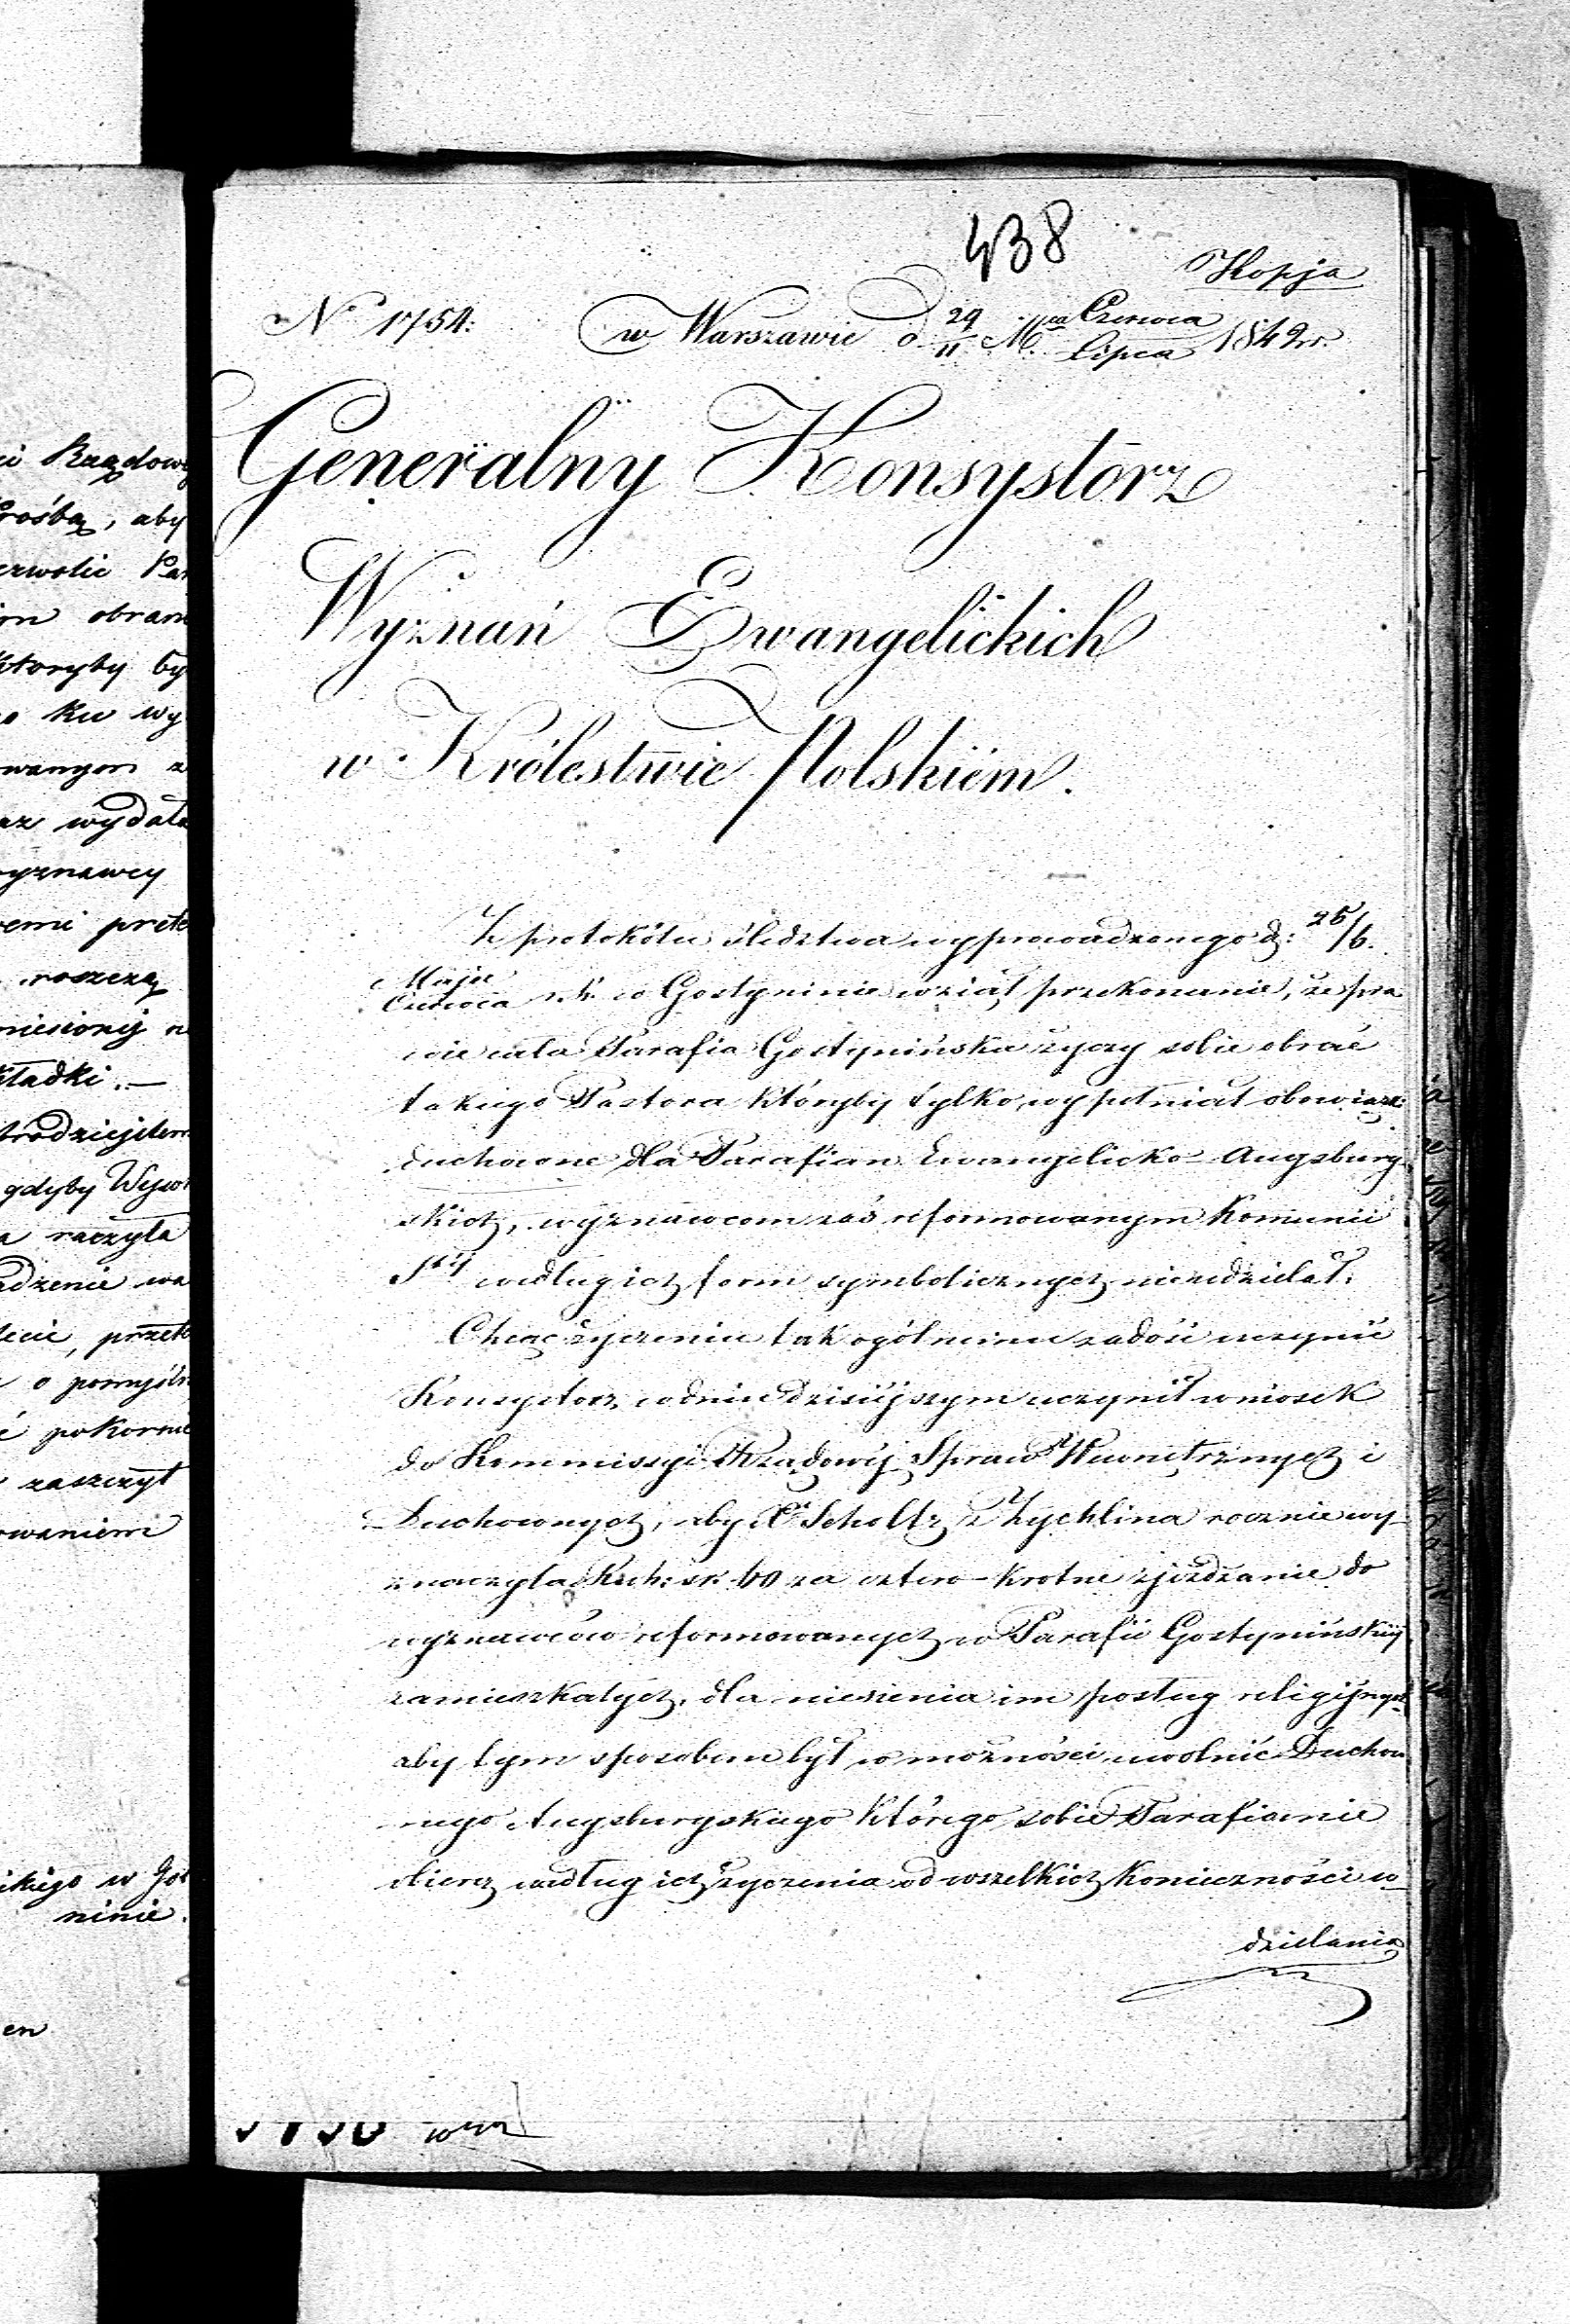 438
Kopja
No 1754. w Warszawie d 29/11 Mca Czerwca/Lipca 1842 r.
Generalny Konsystorz
Wyznań Ewangelickich
w Królestwie Polskiém.
Z protokółu śledztwa wyprowadzonego d: 25/6.
Maja/Czerwca r. b. w Gostyninie wziął przekonanie, że pra
wie cała Parafia Gostynińska życzy sobie obrać
takiego Pastora któryby tylko wypełniał obowiązki
duchowne dla Parafian Ewangelicko-Augsburg
skich, wyznawcom zaś reformowanym Komunii
Stéj według ich form symbolicznych nieudzielał.
Chcąc życzeniu tak ogólnemu zadość uczynić
Konsystorz w dniu dzisiéjszym uczynił wniosek
do Kommissyi Rządowéj Spraw Wewnętrznych i
Duchownych, aby Xi Scholtz z Żychlina rocznie wy-
znaczyła Rub: sr. 60 za cztero-krotne zjeżdżanie do
wyznawców reformowanych w Parafii Gostynińskiéj
zamieszkałych, dla niesienia im posług religijnych
aby tym sposobem był w możności uwolnić Duchow
nego Augsburgskiego którego sobie Parafianie
obiorą według ich życzenia od wszelkich konieczności u-
dzielania
ci Rządowé
Prośbą, aby
ezwolić
obrani
któryby by
ku wy
wydała
yznawcy
prete
roszczą
niesionéj
kładki.—
gdyby Wyso
raczyła
adzenie
o pomyśln
pokornie
zaszczyt
owaniem
w Gos
ninie.